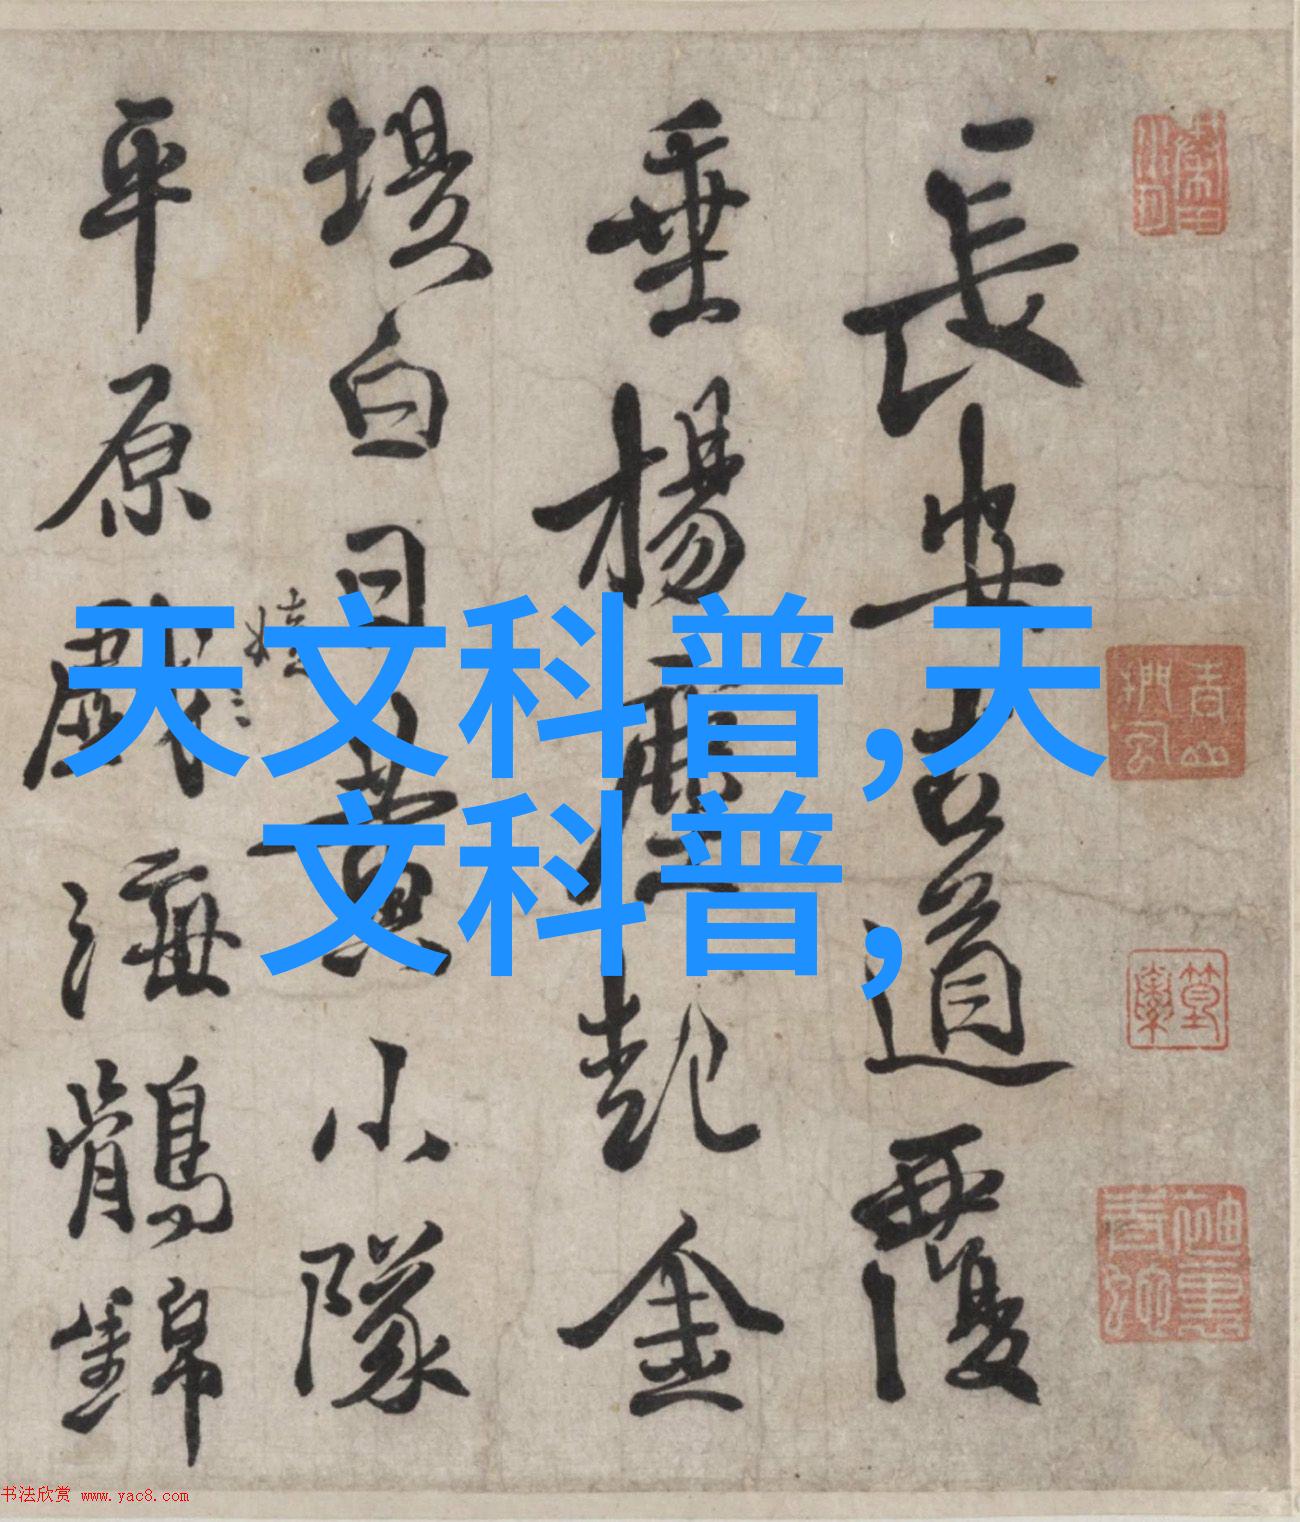 天文科普,天
文科普,
長安古道覆
垂楊塵起金
堤白日黃小隊
平原戲海鶻錦
书法欣赏 www.yac8.com